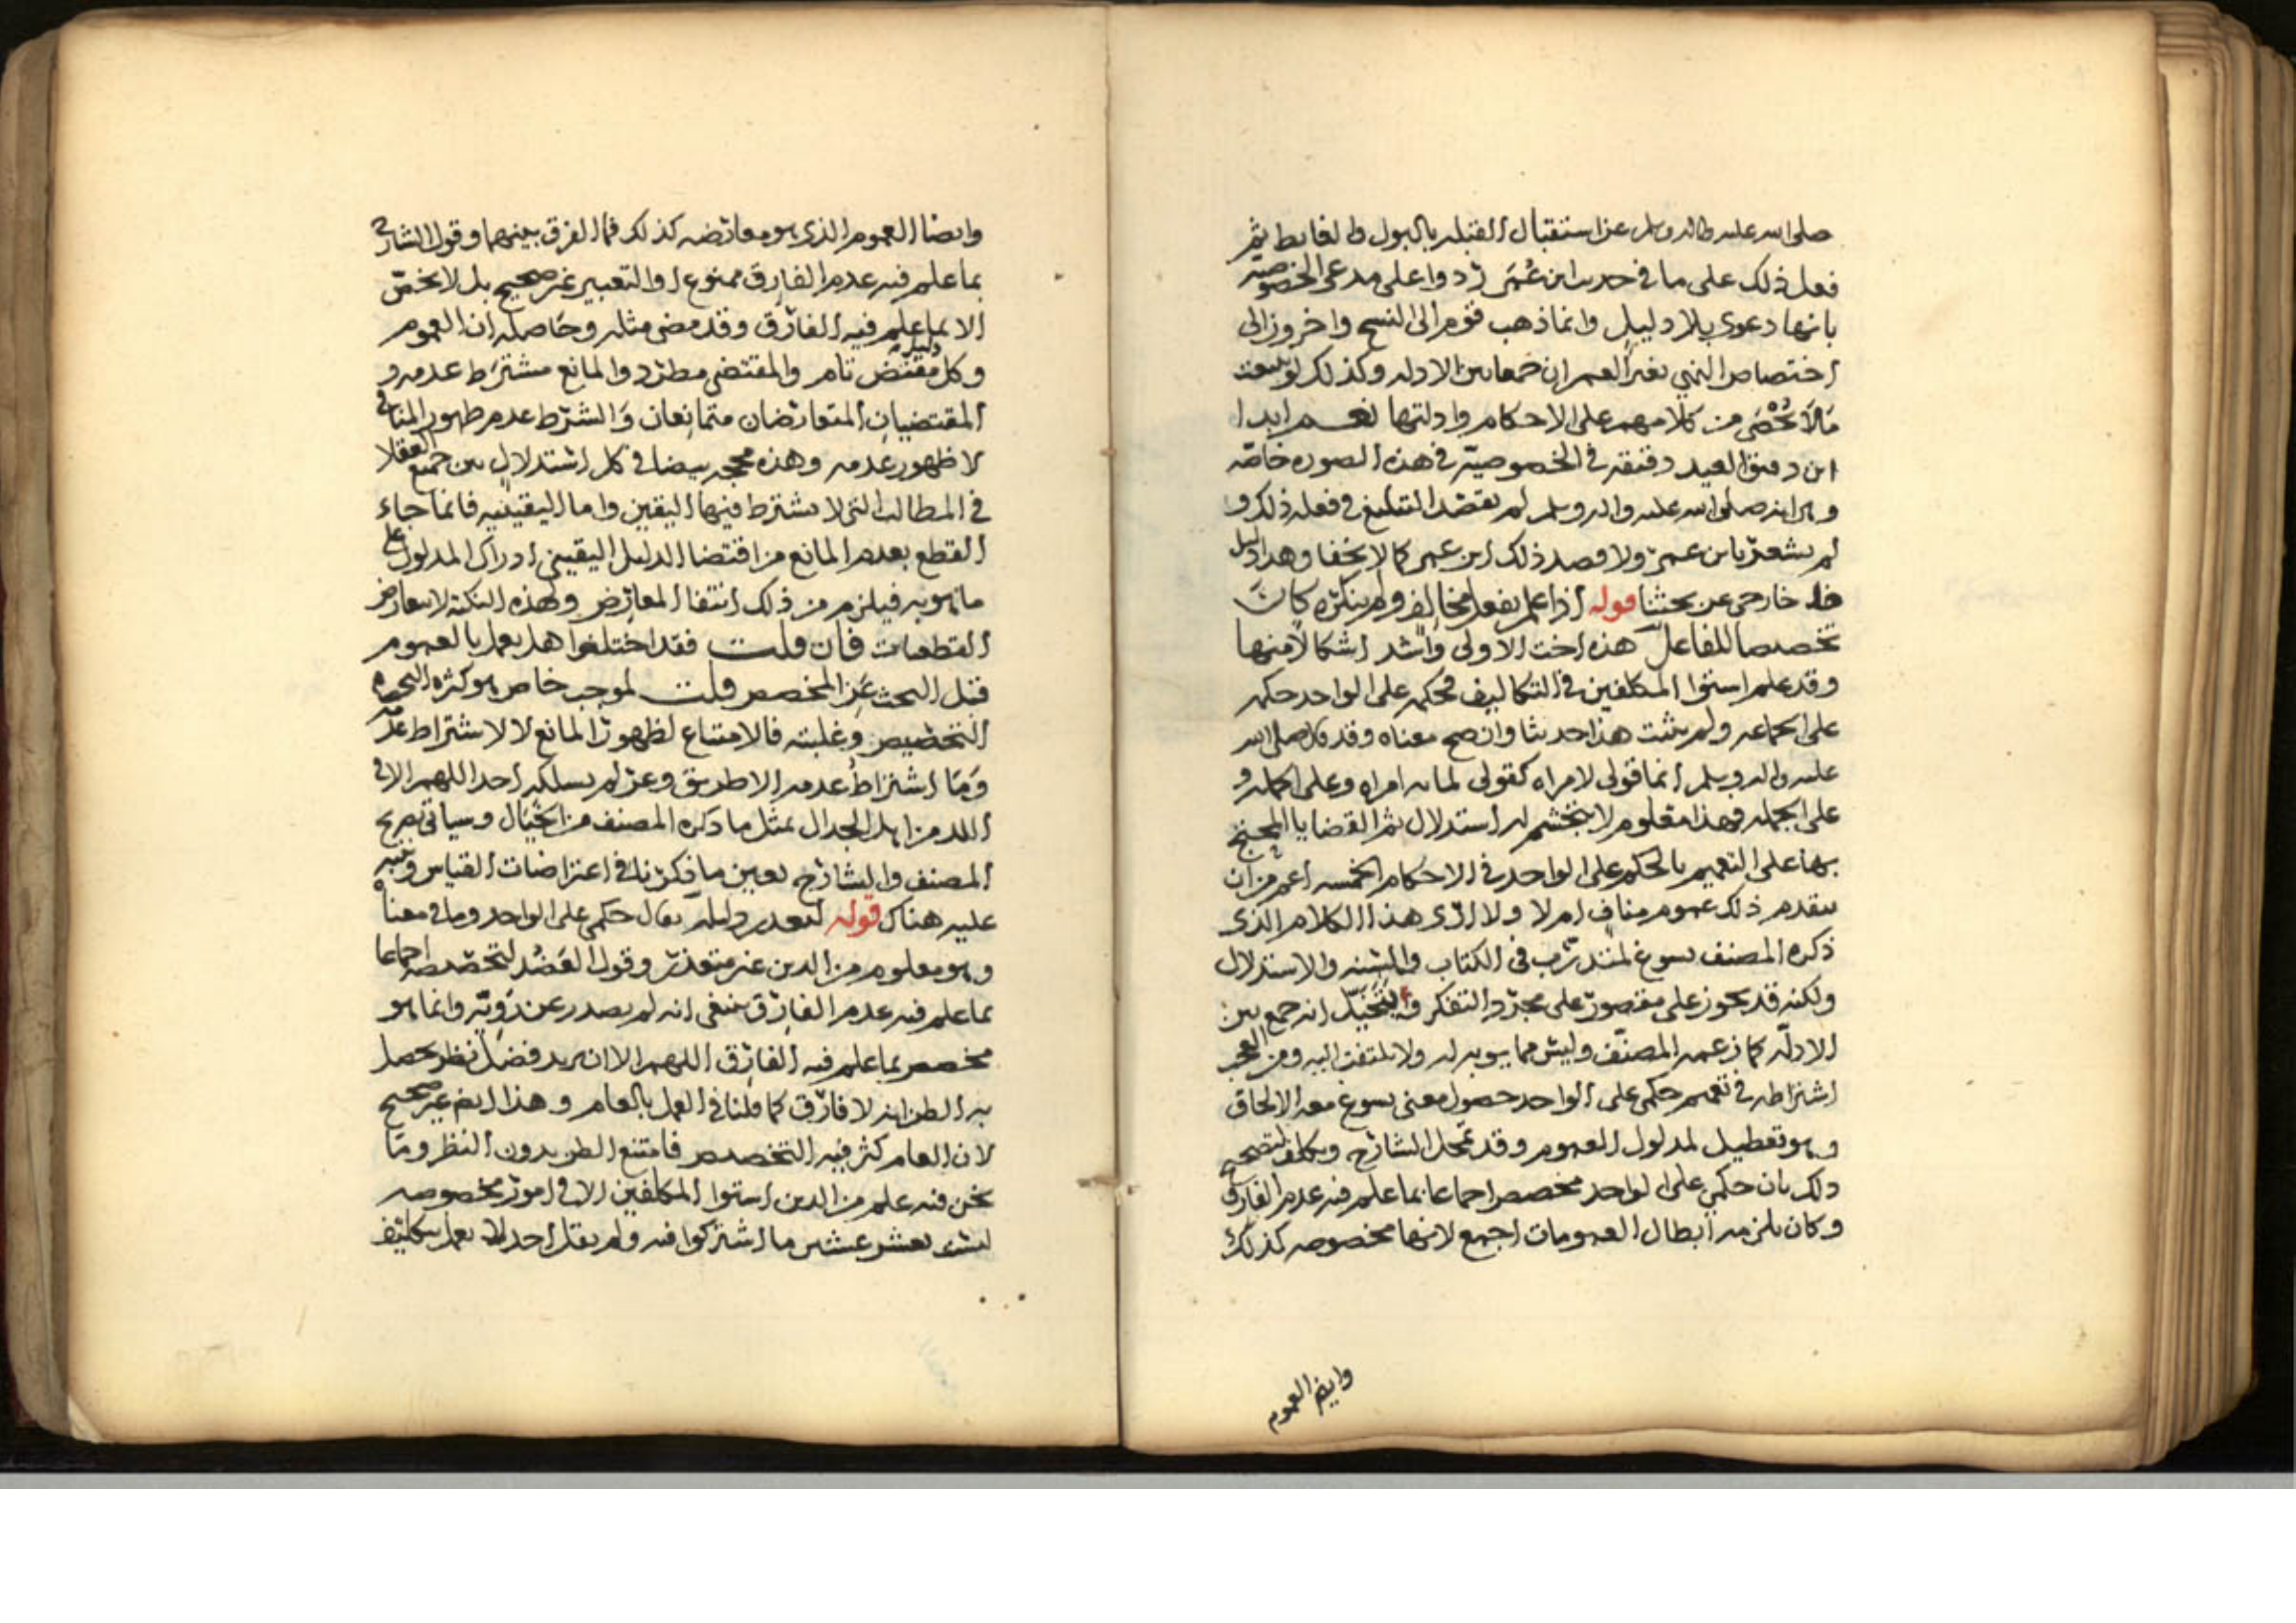 صلى الله عليه واله وسلم عن استقبال القبلة بالبول والغايط ثم
فعل ذلك على ما في حديث ابن عُمَر ردوا على مدعي الخصوصية
بانها دعوى بلا دليل وانما ذهب قوم الى النسخ واخرون الى
اختصاص النهي بغير العمران جمعا بين الادله وكذلك لو تتبعت
مَالَا يُحْصَى من كلامهم على الاحكام وادلتها نعم ابدا
ابن دقيق العيد دقيقة في الخصوصية في هذه الصوره خاصه
وهي انه صلى الله عليه واله وسلم لم يقصد التبليغ في فعله ذلك و
لم يشعر بابن عمر ولا قصد ذلك ابن عمر كما لا يخفا وهذا دليل
خارجي عن بحثنا قوله اذا علم بفعل مخالف ولم ينكره كان
تخصيصا للفاعل هذه اخت الاولى واشد اشكالا منها
وقد علم استوا المكلفين في التكاليف فحكمه على الواحد حكمه
على الجماعه ولم يثبت هذا حديثا وان صح معناه وقد قال صلى الله
عليه واله وسلم انما قولي لامراه كقولي لمايه امراه وعلى الجمله و
على الجمله فهذا معلوم لا يتجشم له استدلال ثم القضايا المحتج
بها على التعميم بالحكم على الواحد في الاحكام الخمسه اعم من ان
يتقدم ذلك عموم مناف ام لا ولا ارى هذا الكلام الذي
ذكره المصنف يسوغ لمتدرب في الكتاب والسنه والاستدلال
ولكنه قد يجوز على مقصور على مجرد التفكر والتخيّل انه جمع بين
الادلّه كما زعمه المصنّف وليس مما يوبه له ولا يلتفت اليه ومن العجب
اشتراطه في تعميم حكمي على الواحد حصول معنى يسوغ معه الالحاق
وهو تعطيل لمدلول العموم وقد تمحل الشارح وتكلف لتصحيح
ذلك بان حكمي على الواحد مخصص اجماعا بما علم فيه عدم الفارق
وكان يلزمه ابطال العمومات اجمع لانها مخصوصه كذلك
وايض العموم
وايضا العموم الذي هو معارضه كذلك فما الفرق بينهما وقول الشارح
بما علم فيه عدم الفارق ممنوع او التعبير غير صحيح بل لا يخصّ
الا بما علم فيه الفارق وقد مضى مثله وحاصله ان العموم
وكل دليل مقتض تام والمقتضي مطرد والمانع مشترط عدمه و
المقتضيان المتعارضان متمانعان والشرط عدم ظهور المنافي
لا ظهور عدمه وهذه محجه بيضا في كل استدلال بين جميع العقلا
في المطالب التي لا يشترط فيها اليقين واما اليقينيه فانما جاء
القطع بعدم المانع من اقتضا الدليل اليقيني ادراك المدلول على
ما هو به فيلزم من ذلك انتفا المعارض ولهذه النكتة لا تتعارض
القطعيات فان قلت فقد اختلفوا هل يعمل بالعموم
قبل البحث عن المخصص قلت لموجب خاص هو كثره
التخصيص وغلبته فالامتناع لظهور المانع لا لاشتراط عدمه
وَمَا اشتراطُ عدمه الا طريق وعر لم يسلكه احد اللهم الا في
اللد من اهل الجدال بمثل ما ذكره المصنف من الخيال وسياتي تصريح
المصنف والشارح بعين ما ذكرنا في اعتراضات القياس وننبه
عليه هناك قوله لتعذر دليله يقال حكمي على الواحد وما في معناه
وهو معلوم من الدين غير متعذر وقول العضد لتخصيصه اجماعا
بما علم فيه عدم الفارق ينبغي انه لم يصدر عن رَوِيّه وانما هو
مخصص بما علم فيه الفارق اللهم الا ان يريد فضل نظر يحصل
به الظن انه لا فارق كما قلنا في العمل بالعام وهذا ايض غير صحيح
لان العام كثر فيه التخصيص فامتنع الظن بدون النظر وما
نحن فيه علم من الدين استوا المكلفين الا في امور مخصوصه
ليست بعشر عشير ما اشتركوا فيه ولم يقل احد لا يعمل بتكليف